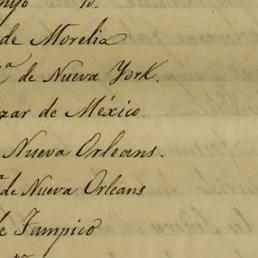 de Morelia
a de Nueva York.
zar de México.
Nueva Orleans.
a de Nueva Orleans
de Tampico